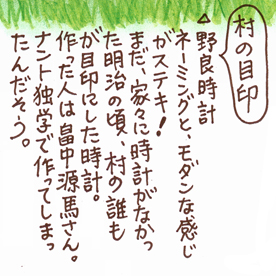 村の目印
△野良時計
ネーミングと、モダンな感じ
がステキ!
まだ、家々に時計がなかっ
た明治の頃、村の誰も
が目印にした時計。
作った人は畠中源馬さん。
ナント独学で作ってしまっ
たんだそう。